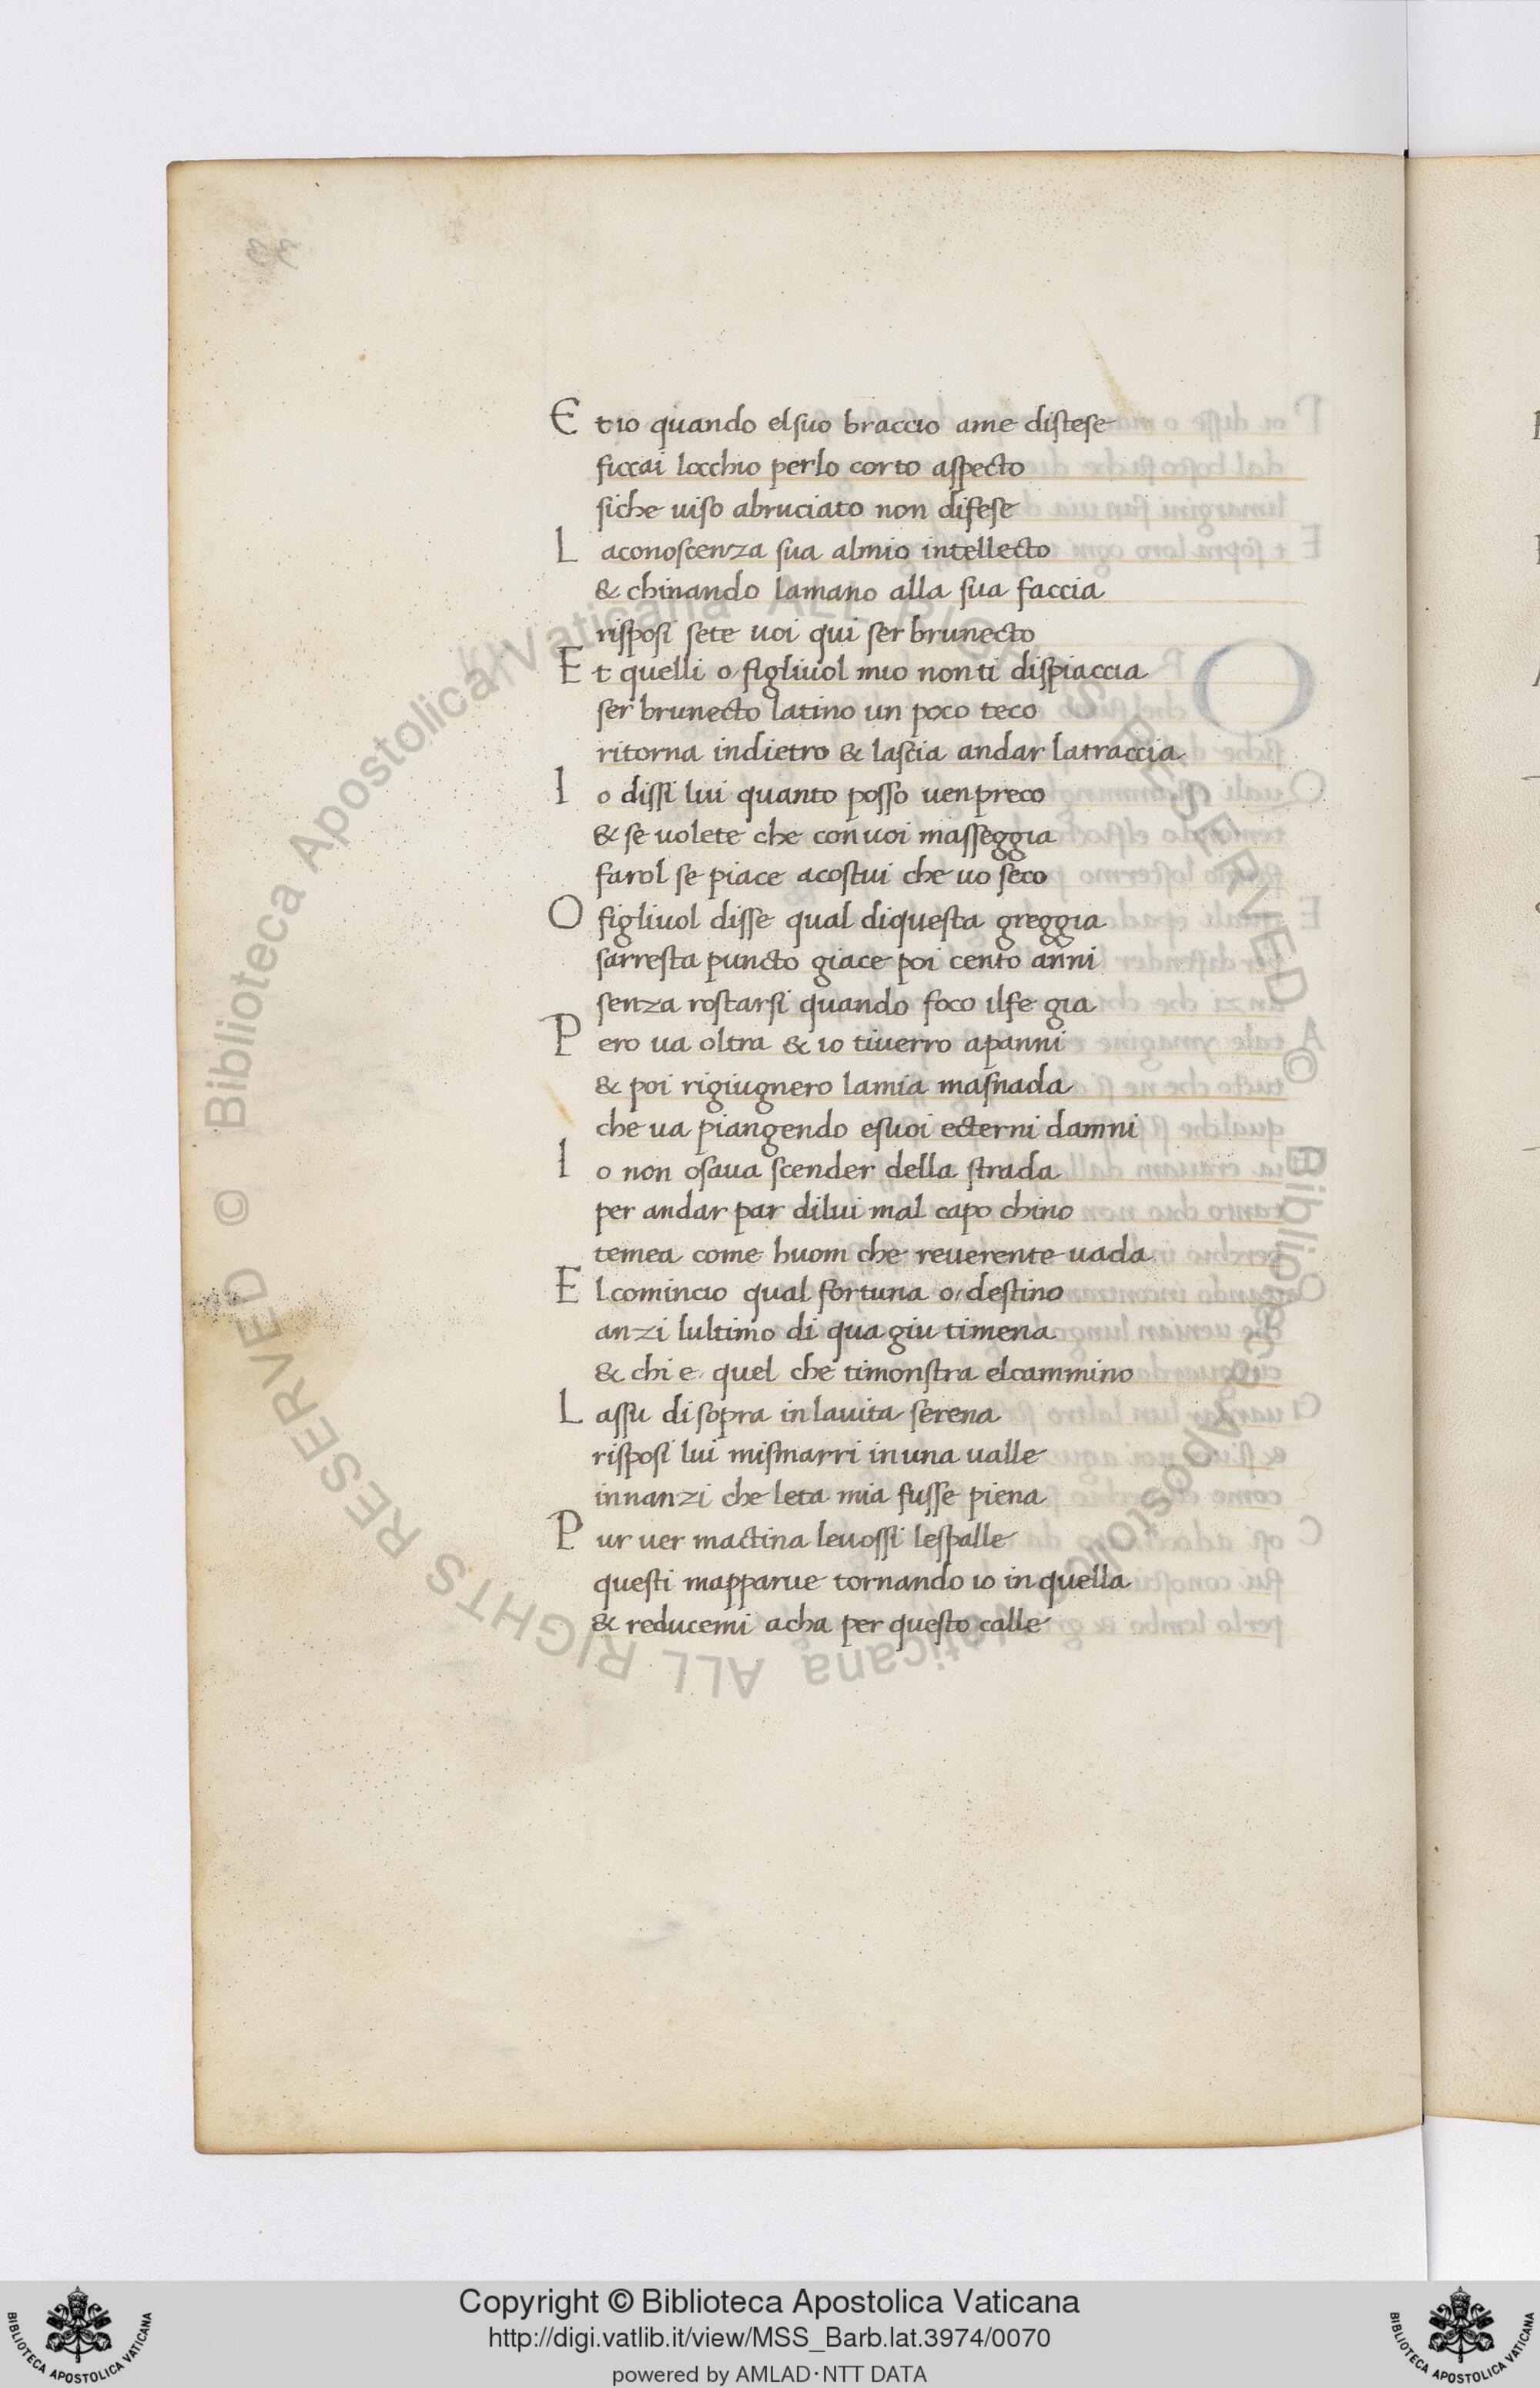 Et io quando elsuo braccio ame distese
ficcai locchio perlo corto aspecto
siche uiso abruciato non difese
Laconoscenza sua almio intellecto
& chinando lamano alla sua faccia
risposi sete uoi qui ser brunecto
Et quelli o figliuol mio non ti dispiaccia
ser brunecto latino un poco teco
ritorna indietro & lascia andar latraccia
Io dissi lui quanto posso uen preco
& se uolete che con uoi masseggia
farol se piace acostui che uo seco
O figliuol disse qual diquesta greggia
sarresta puncto giace poi cento anni
senza rostarsi quando foco ilfegia
Pero ua oltra & io tiuerro apanni
& poi rigiugnero lamia masnada
che ua piangendo esuoi ecterni damni
Io non osaua scender della strada
per andar par dilui mal capo chino
temea come huom che reuerente uada
El comincio qual fortuna o destino
anzi lultimo di qua giu timena
& chi e quel che timonstra elcammino
Lassu di sopra in lauita serena
risposi lui mismarri in una ualle
innanzi che leta mia fusse piena
Pur uer mactina leuossi lespalle
questi mapparue tornando io in quella
& reducemi acha per questo calle
© Biblioteca Apostolica Vaticana ALL RIGHTS RESERVED © Biblioteca Apostolica Vaticana ALL RIGHTS RESERVED
Copyright © Biblioteca Apostolica Vaticana
http://digi.vatlib.it/view/MSS_Barb.lat.3974/0070
powered by AMLAD·NTT DATA
BIBLIOTECA APOSTOLICA VATICANA
BIBLIOTECA APOSTOLICA VATICANA